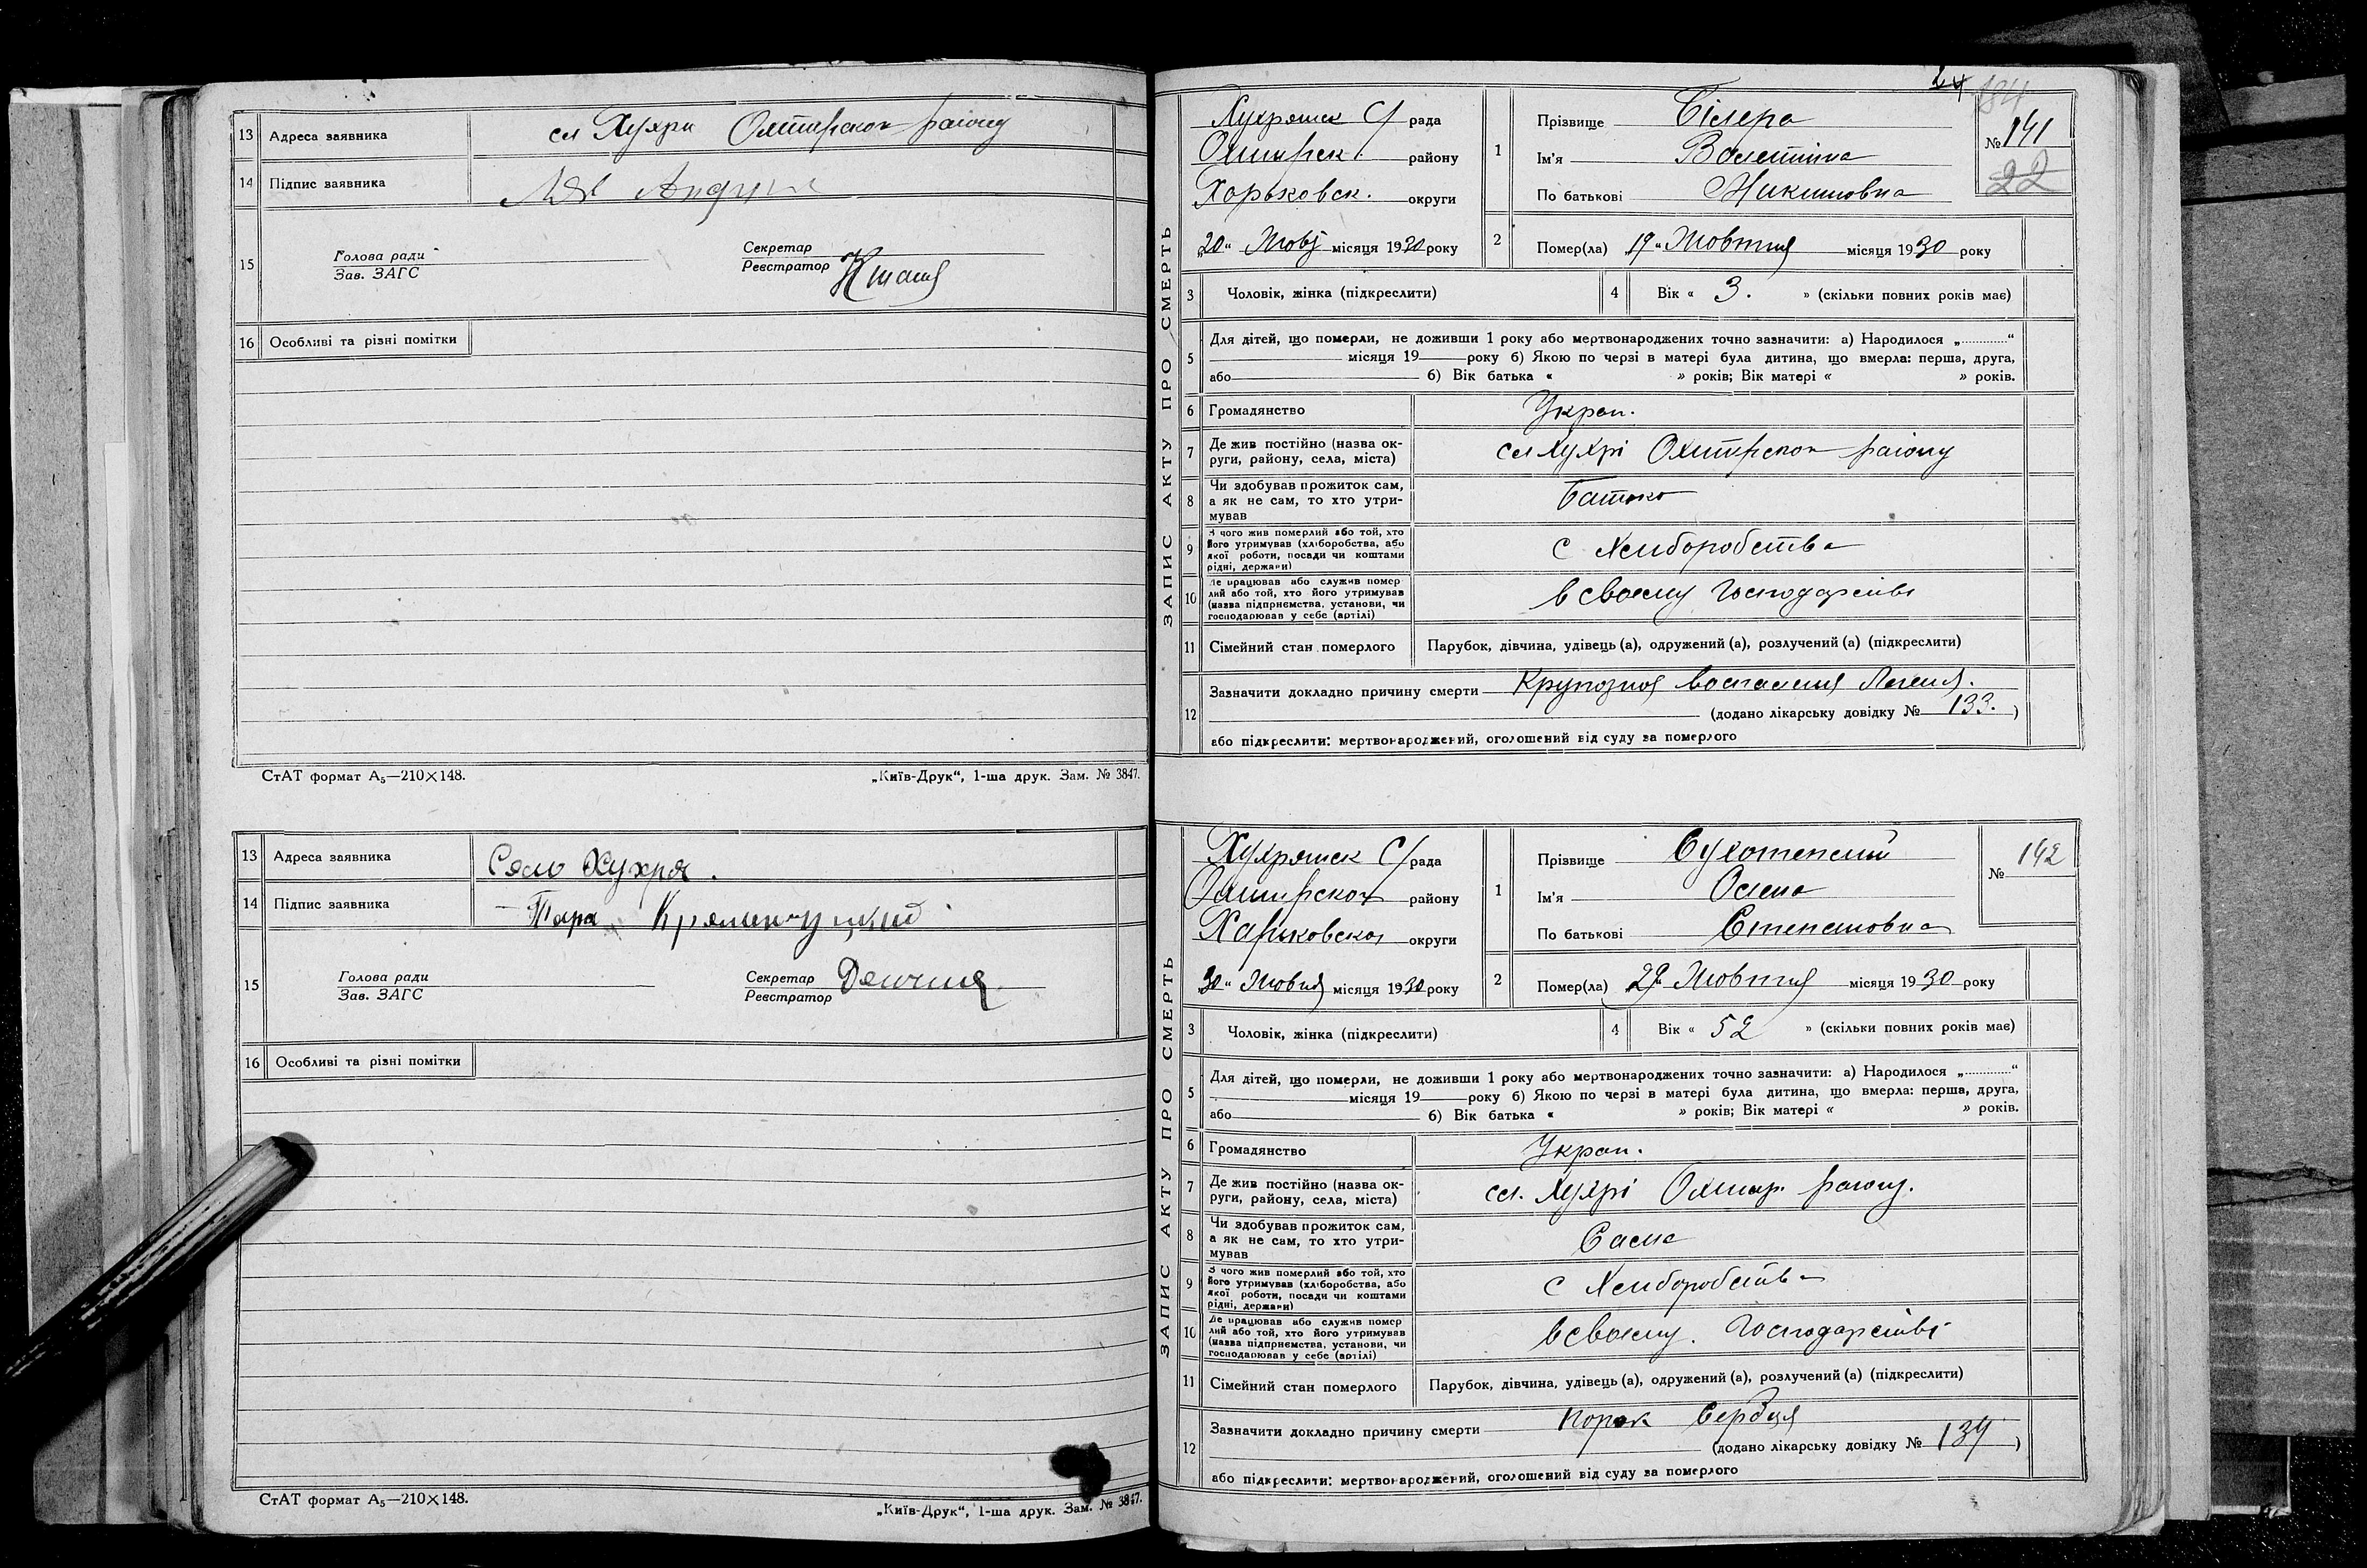 13 Адреса заявника сл Хухри Охтирскон району
14 Підпис заявника Андрій
15 Голова ради
Зав. ЗАГС
Секретар
Реєстратор
16 Особливі та різні помітки
СтАТ формат А₅—210×148. „Київ-Друк“, 1-ша друк. Зам. № 3847.
13 Адреса заявника Село Хухря.
14 Підпис заявника Тара Кременчуцкий
15 Голова ради
Зав. ЗАГС
Секретар
Реєстратор
16 Особливі та різні помітки
СтАТ формат А₅—210×148. „Київ-Друк“, 1-ша друк. Зам. № 3847.
24 184
ЗАПИС АКТУ ПРО СМЕРТЬ
Хухрянск С/рада
Охтирск. району
Харьковск. округи
„20“ Жовт місяця 1930 року
1 Прізвище Білера
Ім'я Валентина
По батькові Никитовна
№ 141
22
2 Помер(ла) 19 „ Жовтня місяця 1930 року
3 Чоловік, жінка (підкреслити) 4 Вік « 3. » (скільки повних років має)
5 Для дітей, що померли, не доживши 1 року або мертвонароджених точно зазначити: а) Народилося „............“
місяця 19 року б) Якою по черзі в матері була дитина, що вмерла: перша, друга,
або б) Вік батька « » років; Вік матері « » років.
6 Громадянство Укран.
7 Де жив постійно (назва ок-
руги, району, села, міста) сл Хухрі Охтирскон району
8 Чи здобував прожиток сам,
а як не сам, то хто утри-
мував Батько
9 З чого жив померлий або той, хто
його утримував (хліборобства, або
якої роботи, посади чи коштами
рідні, держави) с Хлиборобства
10 Де працював або служив помер
лий або той, хто його утримував
(назва підприємства, установи, чи
господарював у себе (артілі) в своему Господарстві
11 Сімейний стан померлого Парубок, дівчина, удівець (а), одружений (а), розлучений (а) (підкреслити)
12 Зазначити докладно причину смерти Крупозноя воспаления Легеня.
(додано лікарську довідку № 133. )
або підкреслити: мертвонароджений, оголошений від суду за померлого
ЗАПИС АКТУ ПРО СМЕРТЬ
Хухрянск С/рада
Охтирскон району
Харьковскон округи
„30“ Жовтня місяця 1930 року
1 Прізвище Сухотепский
Ім'я Олена
По батькові Степановна
№ 142
2 Помер(ла) „29“ Жовтня місяця 1930 року
3 Чоловік, жінка (підкреслити) 4 Вік « 52 » (скільки повних років має)
5 Для дітей, що померли, не доживши 1 року або мертвонароджених точно зазначити: а) Народилося „............“
місяця 19 року б) Якою по черзі в матері була дитина, що вмерла: перша, друга,
або б) Вік батька « » років; Вік матері « » років.
6 Громадянство Укран.
7 Де жив постійно (назва ок-
руги, району, села, міста) сл. Хухрі Охтир. району.
8 Чи здобував прожиток сам,
а як не сам, то хто утри-
мував Сама
9 З чого жив померлий або той, хто
його утримував (хліборобства, або
якої роботи, посади чи коштами
рідні, держави) с Хлиборобства
10 Де працював або служив помер
лий або той, хто його утримував
(назва підприємства, установи, чи
господарював у себе (артілі) в своему Господарстві
11 Сімейний стан померлого Парубок, дівчина, удівець (а), одружений (а), розлучений (а) (підкреслити)
12 Зазначити докладно причину смерти порок Сердця
(додано лікарську довідку № 134 )
або підкреслити: мертвонароджений, оголошений від суду за померлого